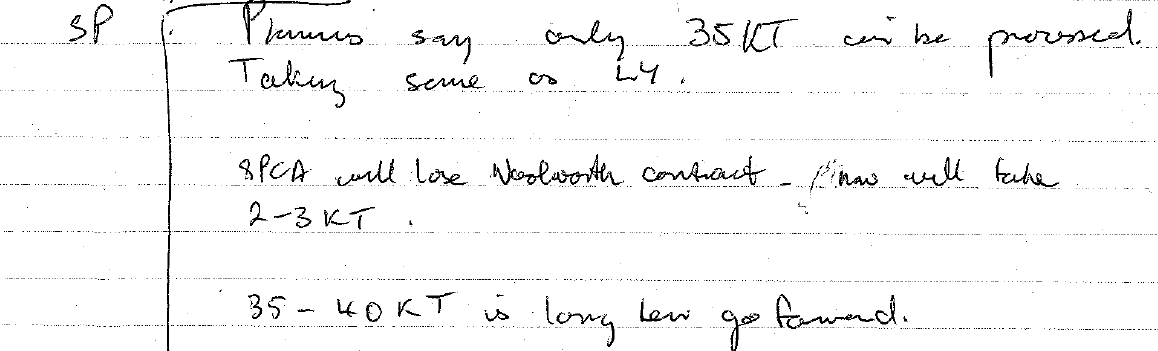 SP Planners say only 35KT can be processed.
Taking same as LY.
SPCA will lose Woolworth contract - will take
2-3 KT.
35 - 40 KT is long term go forward.